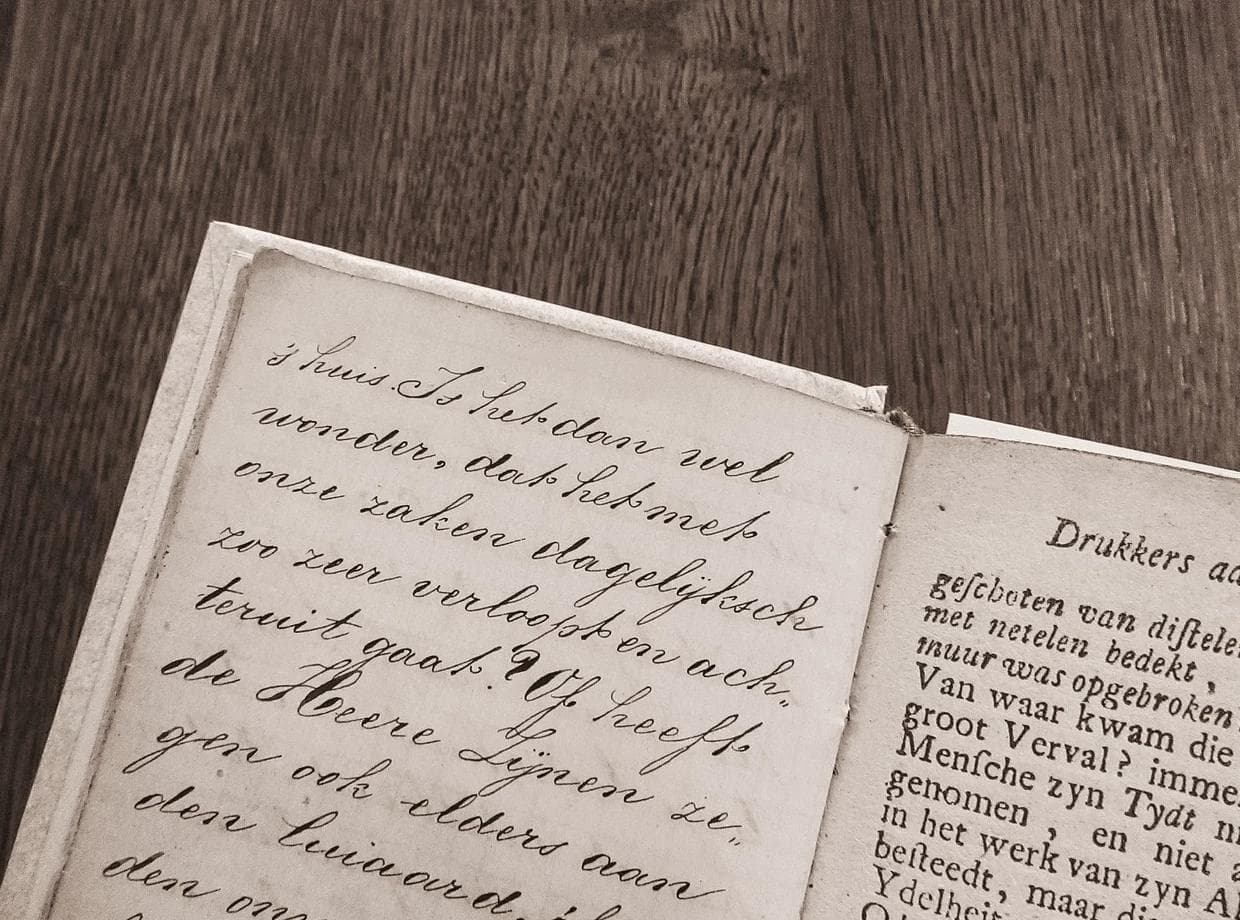 's huis. Is het dan wel
wonder, dat het met
onze zaken dagelijksch
zoo zeer verloopt en ach„
teruit gaat? Of heeft
de Heere Zijnen ze„
gen ook elders aan
den luiaard,
den
Drukkers
geſchoten van
met netelen bedekt,
muur was opgebroken
Van waar kwam die
groot Verval?
Menſche zyn Tydt
genomen, en niet
in het werk van zyn
beſteedt, maar